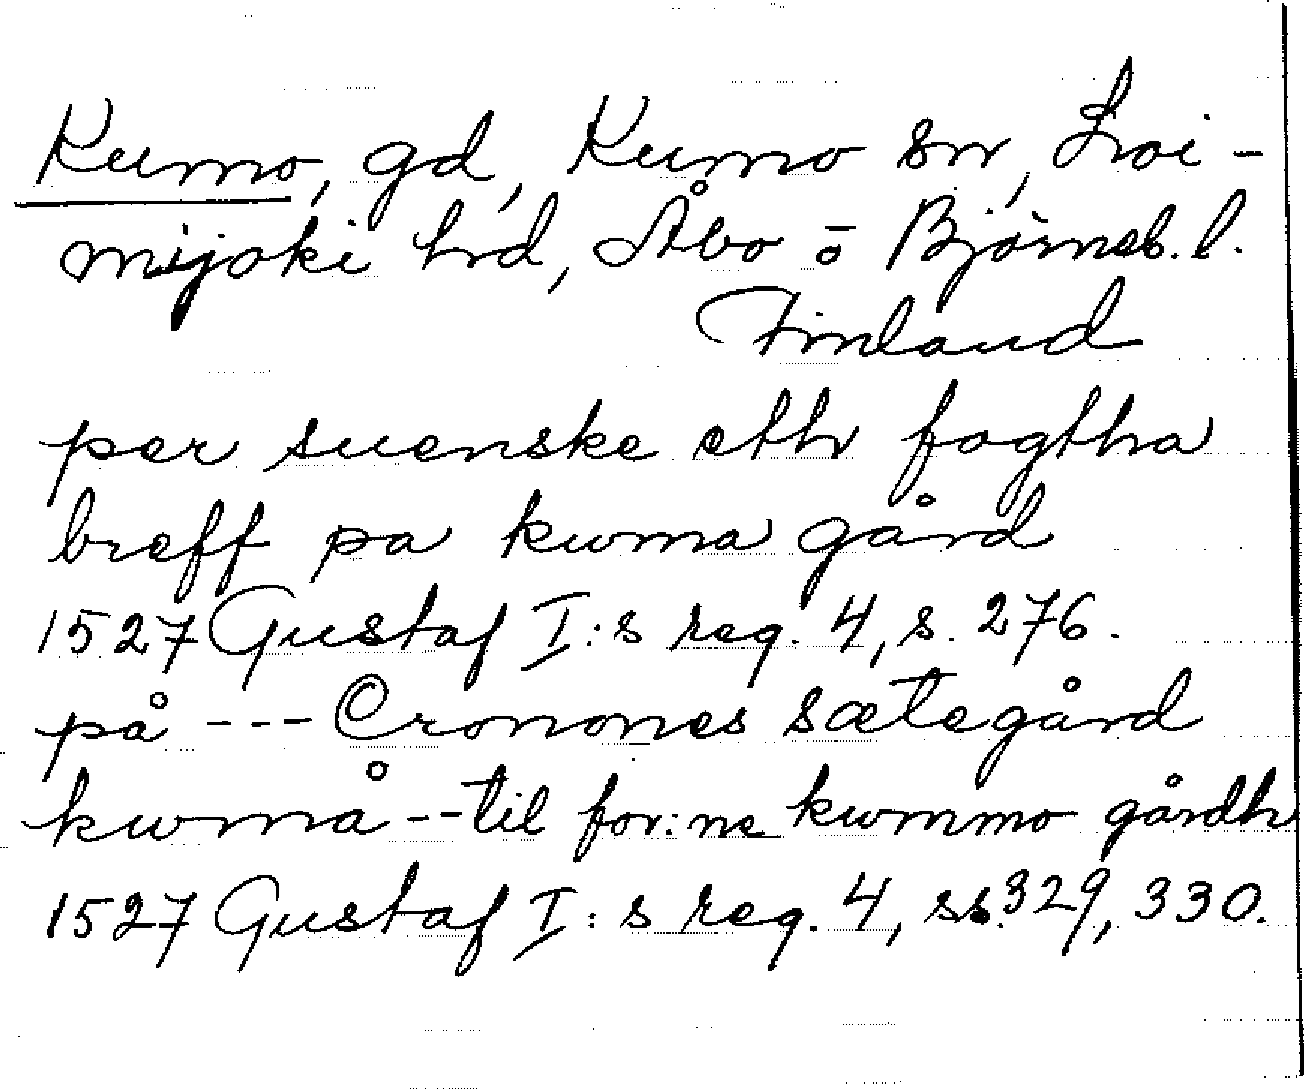 Kumo, gd, Kumo sn, Loi-
mijoki hd, Åbo o Björneb. l.
Finland
per suenske eth fogtha
breff pa kwma gård
1527 Gustaf I:s reg. 4, s. 276.
på --- Cronones sætegård
kwmå -- til for:ne kwmmo gårdh
1527 Gustaf I:s reg. 4, ss. 329, 330.